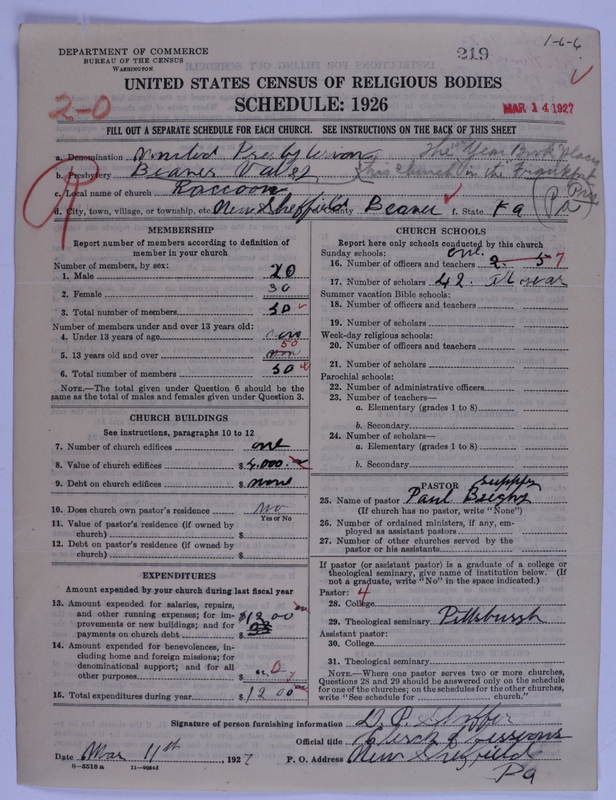 DEPARTMENT OF COMMERCE
BUREAU OF THE CENSUS
WASHINGTON
219
1-6-6
UNITED STATES CENSUS OF RELIGIOUS BODIES
SCHEDULE: 1926
2-0
MAR 14 1927
FILL OUT A SEPARATE SCHEDULE FOR EACH CHURCH. SEE INSTRUCTIONS ON THE BACK OF THIS SHEET
a. Denomination United Presbyterian
The Year Book places this church in the Frankfort Pres (Pa)
b. Presbytery Beaver Valley
c. Local name of church Raccoon
d. City, town, village, or township, etc. New Sheffield County Beaver f. State Pa
R
MEMBERSHIP
Report number of members according to definition of member in your church
Number of members, by sex:
1. Male 20
2. Female 30
3. Total number of members 50
Number of members under and over 13 years old:
4. Under 13 years of age
5. 13 years old and over 50
6. Total number of members 50
NOTE.—The total given under Question 6 should be the
same as the total of males and females given under Question 3.
CHURCH BUILDINGS
See instructions, paragraphs 10 to 12
7. Number of church edifices one
8. Value of church edifices $ 4,000.
9. Debt on church edifices $ none
10. Does church own pastor's residence no
Yes or No
11. Value of pastor's residence (if owned by
church) $
12. Debt on pastor's residence (if owned by
church) $
EXPENDITURES
Amount expended by your church during last fiscal year
13. Amount expended for salaries, repairs,
and other running expenses; for im-
provements or new buildings; and for
payments on church debt $ 1200
14. Amount expended for benevolences, in-
cluding home and foreign missions; for
denominational support; and for all
other purposes $
15. Total expenditures during year $ 1200
CHURCH SCHOOLS
Report here only schools conducted by this church
Sunday schools: one.
16. Number of officers and teachers 2 5 7
17. Number of scholars 42. all year
Summer vacation Bible schools:
18. Number of officers and teachers
19. Number of scholars
Week-day religious schools:
20. Number of officers and teachers
21. Number of scholars
Parochial schools:
22. Number of administrative officers
23. Number of teachers—
a. Elementary (grades 1 to 8)
b. Secondary
24. Number of scholars—
a. Elementary (grades 1 to 8)
b. Secondary
PASTOR supply
25. Name of pastor Paul
(If church has no pastor, write "None")
26. Number of ordained ministers, if any, em-
ployed as assistant pastors
27. Number of other churches served by the
pastor or his assistants
If pastor (or assistant pastor) is a graduate of a college or
theological seminary, give name of institution below. (If
not a graduate, write "No" in the space indicated.)
Pastor: 4
28. College
29. Theological seminary Pittsburgh
Assistant pastor:
30. College
31. Theological seminary
NOTE.—Where one pastor serves two or more churches,
Questions 28 and 29 should be answered only on the schedule
for one of the churches; on the schedules for the other churches,
write "See schedule for church."
Signature of person furnishing information
Official title Clerk of Sessions
Date Mar 11st, 1927 P. O. Address New Sheffield
Pa
8-5518 a